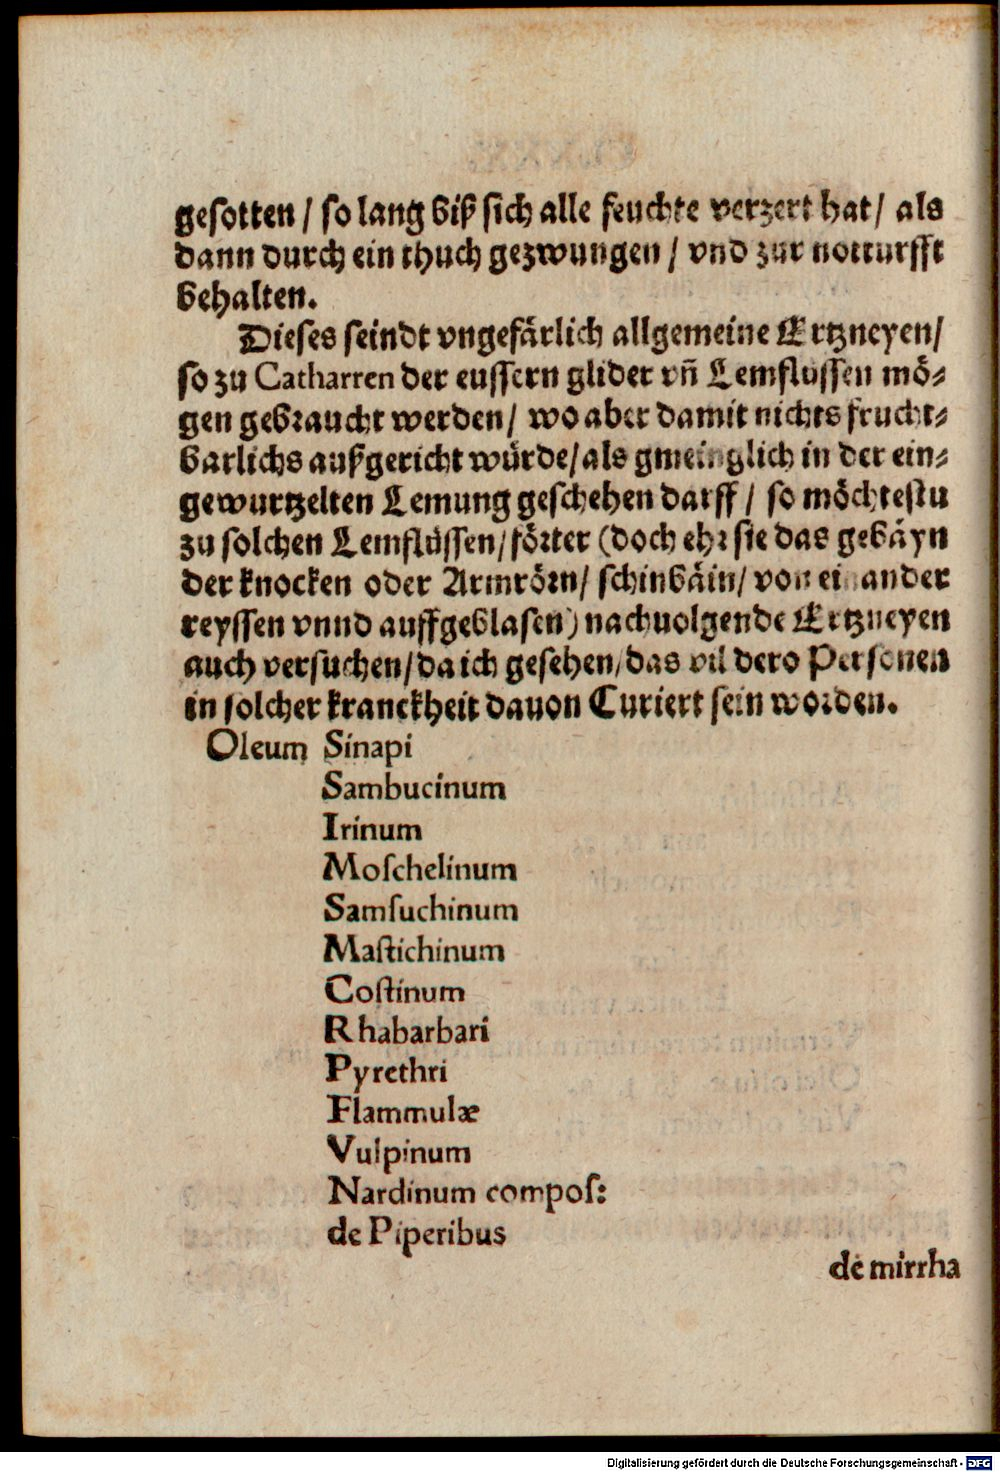 gesotten / so lang biß sich alle feuchte verzert hat / als
dann durch ein thuch gezwungen / vnd zur notturfft
behalten.
Dieses seindt vngefärlich allgemeine Ertzneyen /
so zu Catharren der eussern glider vñ Lemflüssen mö⸗
gen gebraucht werden / wo aber damit nichts frucht⸗
barlichs außgericht würde / als gmeinglich in der ein⸗
gewurtzelten Lemung geschehen darff / so möchtestu
zu solchen Lemflüssen / förter (doch ehr sie das gebäyn
der knocken oder Armrörn / schinbäin / von einander
reyssen vnnd auffgeblasen) nachuolgende Ertzneyen
auch versuchen / da ich gesehen / das vil dero Personen
in solcher kranckheit dauon Curiert sein worden.
Oleum Sinapi
Sambucinum
Irinum
Moschelinum
Samsuchinum
Mastichinum
Costinum
Rhabarbari
Pyrethri
Flammulæ
Vulpinum
Nardinum compos:
de Piperibus
de mirrha
Digitalisierung gefördert durch die Deutsche Forschungsgemeinschaft - DFG